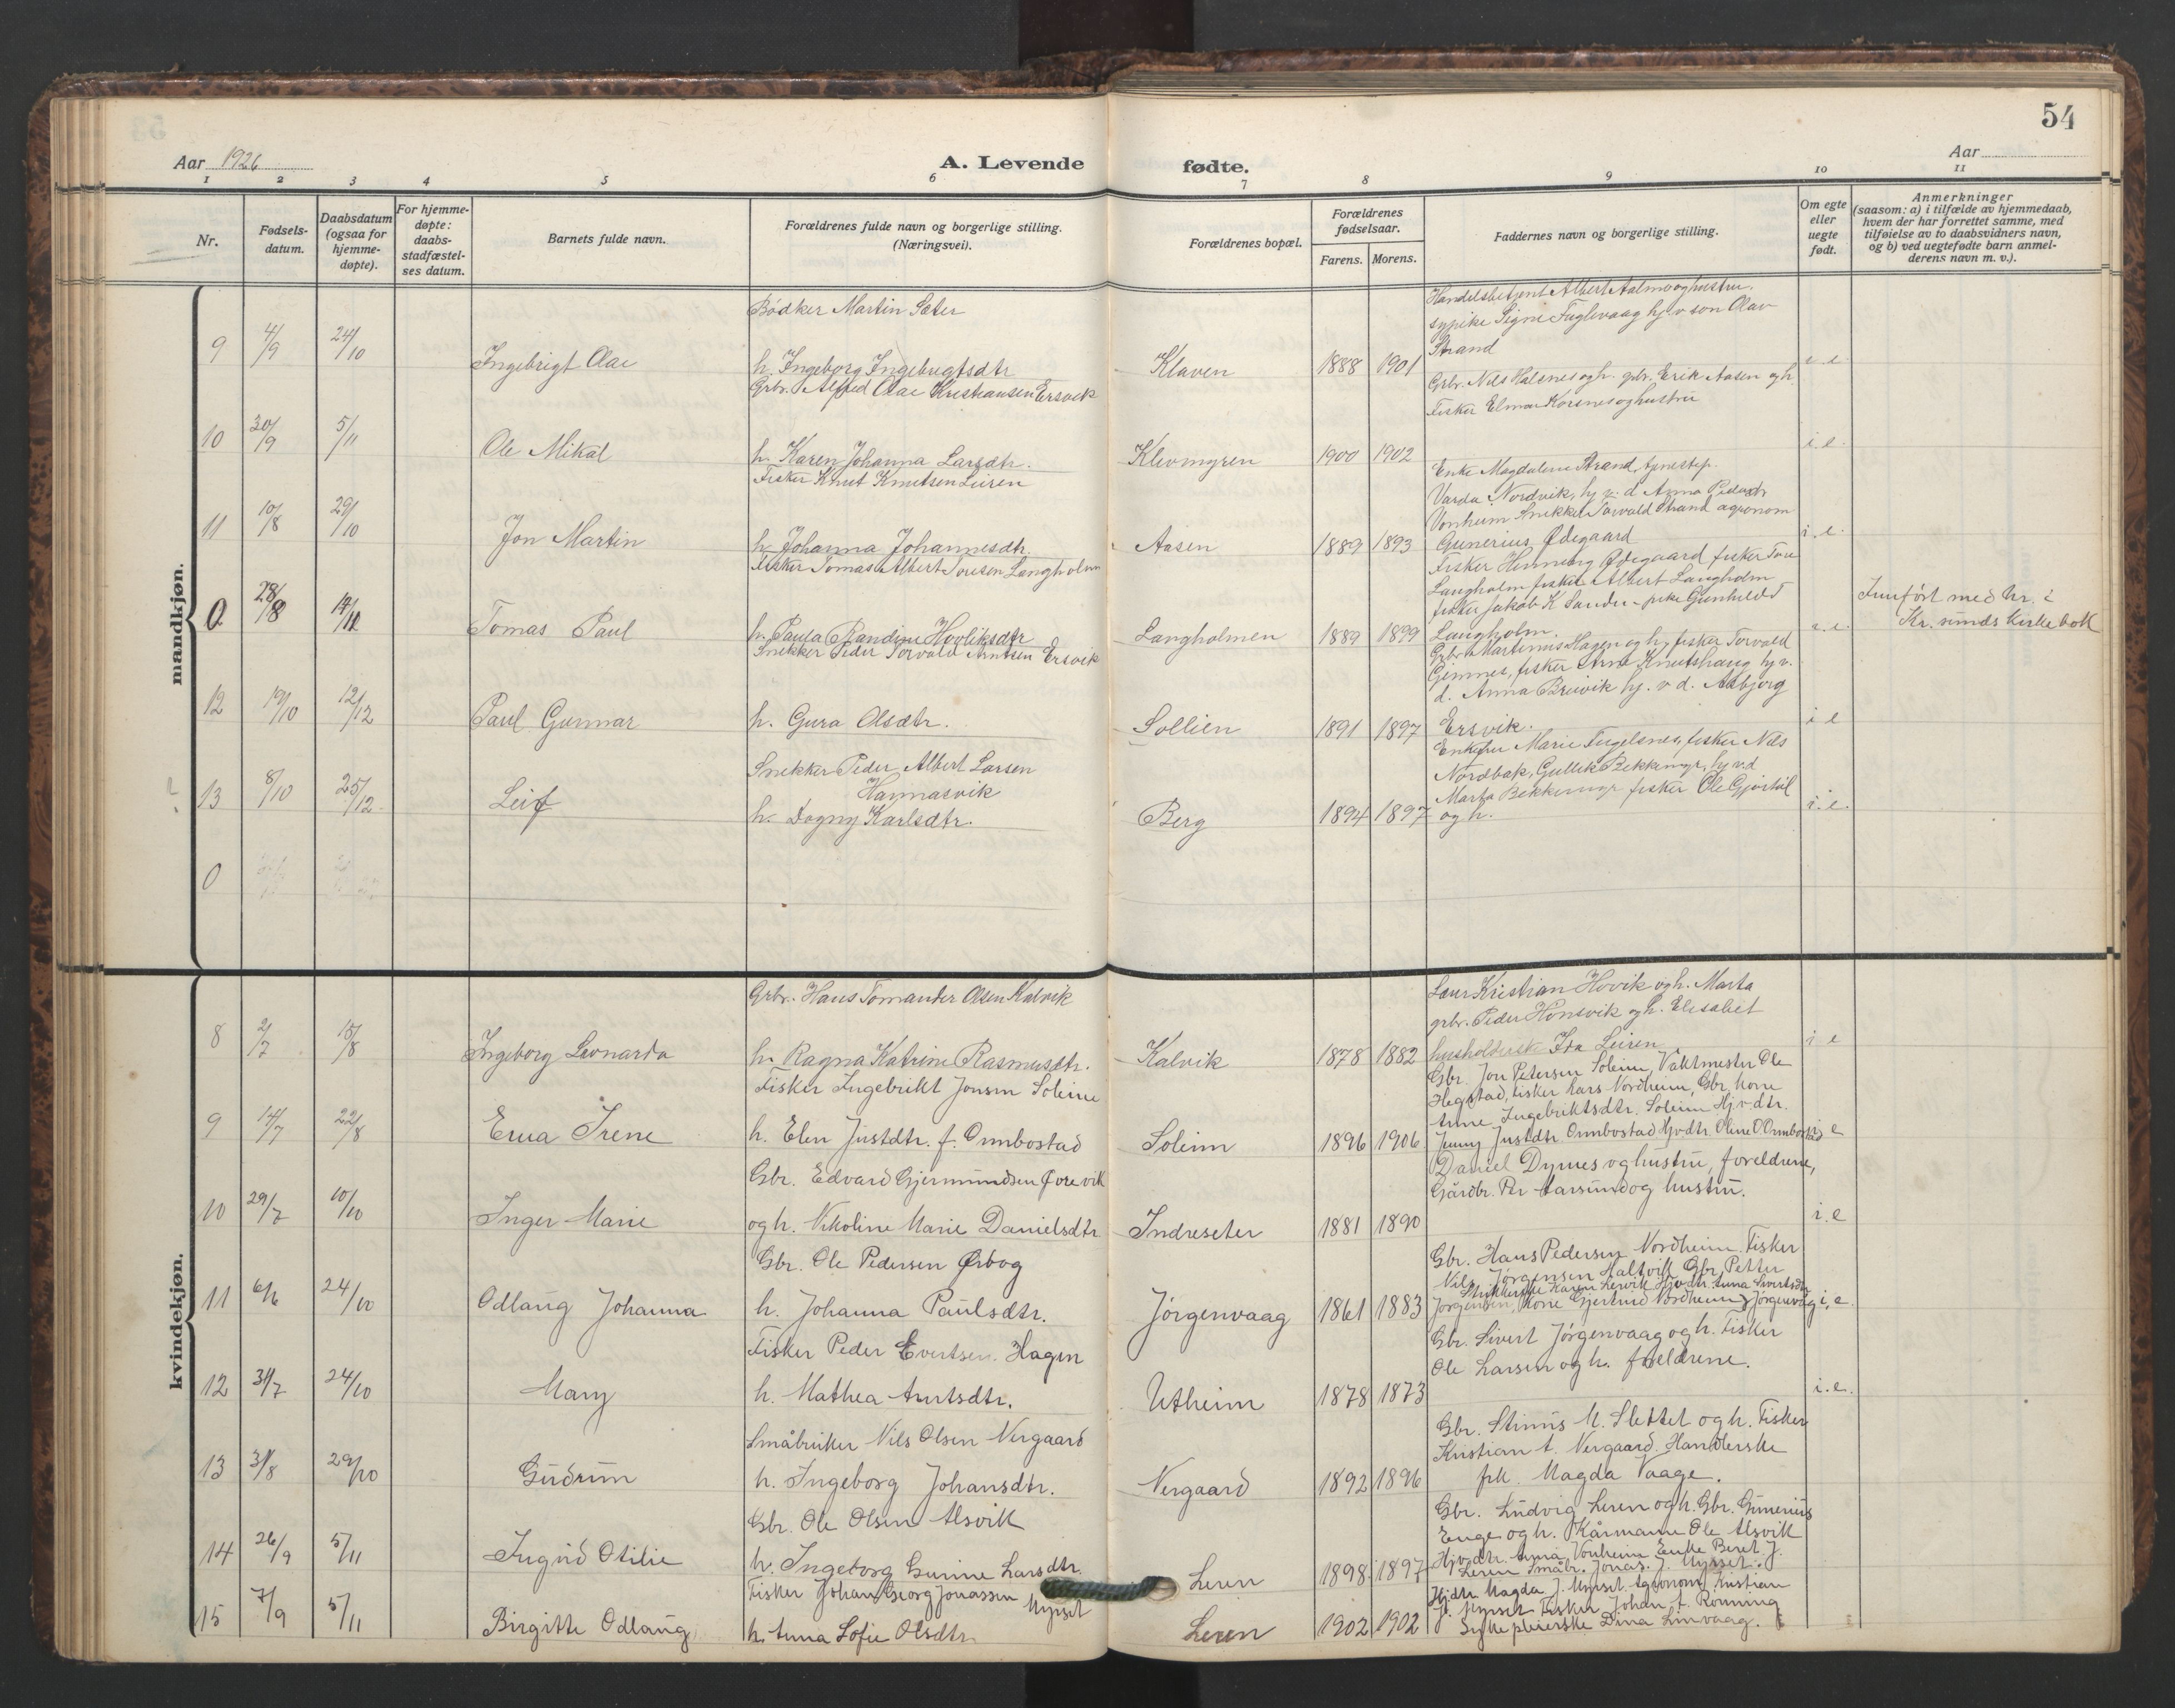 54
Aar 1926
A. Levende fødte.
Aar
1 2 3 4 5 6 7 8 9 10 11
Nr.
Fødsels-datum.
Daabsdatum (ogsaa for hjemme-døpte).
For hjemme-døpte: daabs-stadfæstel-ses datum.
Barnets fulde navn.
Forældrenes fulde navn og borgerlige stilling. (Næringsvei).
Forældrenes bopæl.
Forældrenes fødselsaar.
Farens. Morens.
Faddernes navn og borgerlige stilling.
Om egte eller uegte født.
Anmerkninger
(saasom: a) i tilfælde av hjemmedaab,
hvem der har forrettet samme, med
tilføielse av to daabsvidners navn,
og b) ved uegtefødte barn anmel-
derens navn m. v.).
mandkjøn.
Bødker Martin Sæter
Handelsbetjent Albert Aalmo og hustru.
sypike Signe Fuglevaag hj. v søn Olav
Strand
9 4/9 24/10 Ingebrigt Olai h. Ingeborg Ingebrigtsdtr Klaven 1888 1901 i.e.
Grbr. Alfred Olai Kristiansen Ersvik
Grbr. Nils Halsnes og h. grbr. Erik Aasen og h.
Fisker Elmar Korsnes og hustru
10 30/9 5/11 Ole Mikal h. Karen Johanna Larsdtr. Klevmyren 1900 1902 i.e.
Fisker Knut Knutsen Leiren
Enke Magdalene Strand, tjenestep.
Varda Nordvik, hj. v. d Anna Pedersdtr
Vonheim Snekker Torvald Strand agronom
11 10/8 29/10 Jon Martin h. Johanna Johannesdtr. Aasen 1889 1893 Gunerius Ødegaard i.e.
Fisker Tomas Albert Toresen Langholm
Fisker Henneng Ødegaard fisker Tore
Langholm fisker Albert Langholm
fisker Jakob K Sandø - pike Gunhild
0 28/8 14/11 Tomas Paul h. Paula Randine Hovliksdtr Langholmen 1889 1899 Langholm. i.e.
Innført med nr. i
Kr.sunds kirkebok
Snekker Peder Torvald Arntsen Ersvik
Grbr Martinus Hagen og h. fisker Torvald
Gimnes, fisker Arne Knutshaug hj v.
d. Anna Breivik hj. v d. Asbjørg
12 19/10 12/12 Paul Gunnar h. Gura Olsdtr. Sollien 1891 1897 Ersvik. i e
Snekker Peder Albert Larsen
Havnasvik
Enkefru Marie Fugelsnes, fisker Nils
Nordbak, Gullik Bekkemyr, hj v d
Marta Bekkemyr fisker Ole Gjøstøl
13 8/10 25/12 Leif h. Dagny Karlsdtr. Berg 1894 1897 og h. i.e.
0
kvindekjøn.
Grbr. Hans Tomander Olsen Kalvik
Lærer Kristian Hovik og h. Marta
grbr. Peder Honsvik og h. Elisabet
8 2/7 15/8 Ingeborg Leonarda h. Ragna Katrine Rasmusdtr. Kalvik 1878 1882 husholderske Ida Leiren i e
Fisker Ingebrikt Jonsen Soleim
Gbr. Jon Petersen Soleim, Vaktmester Ole
Hegstad, Fisker Lars Nordheim, Gbr. kone
Anne Ingebriktsdtr. Soleim Hj.v.dtr.
9 14/7 22/8 Erna Irene h. Elen Justdtr. f. Ormbostad Soleim 1896 1906 Jenny Justdtr Ormbostad Hjvdtr. Oline O. Ormbostad i e
Gbr. Edvard Gjermundsen Forevik
Daniel Dyrnes og hustru, foreldrene,
Gårdbr. Per Aarsund og hustru.
10 29/7 10/10 Inger Marie og h. Nikoline Marie Danielsdtr Indreseter 1881 1890 i.e
Gbr. Ole Pedersen Ørbog
Gbr. Hans Pedersen Nordheim. Fisker
Nils Jørgensen Haltvik Gbr. Petter
Strikkerske Karen Lervik Hjvdtr. Anna Sivertsdtr
11 6/6 24/10 Odlaug Johanna h. Johanna Paulsdtr. Jørgenvaag 1861 1883 Jørgensen, Kone Gjertrud Nordheim Jørgenvåg i.e.
Fisker Peder Evertsen Hagen
Gbr. Sivert Jørgenvaag og h. Fisker
Ole Larsen og h. foreldrene.
12 31/7 24/10 Mary h. Mathea Arntsdtr. Utheim 1878 1873 i.e.
Småbruker Nils Olsen Nergaard
Gbr. Stinius M. Slettet og h. Fisker
Kristian A. Nergaard. Handlerske
13 31/8 29/10 Gudrun h. Ingeborg Johansdtr. Nergaard 1892 1896 frk. Magda Vaage.
Gbr. Ole Olsen Alsvik
Gbr. Ludvig Leren og h. Gbr. Gunerius
Enge og h. Kårmann Ole Alsvik
14 26/9 5/11 Ingrid Otilie h. Ingeborg Gurine Larsdtr. Leren 1898 1897 Hjvdtr. Anna Vonheim Enke Beret J.
Leren Småbr. Jonas J. Myrset.
Fisker Johan Georg Jonassen Myrset
Hjdtr. Magda J. Myrset. Agronom Kristian
J. Myrset Fisker Johan A. Rønning
15 7/9 5/11 Birgitte Odlaug h. Anna Sofie Olsdtr. Leren 1902 1902 Sykepleierske Dina Linvaag.